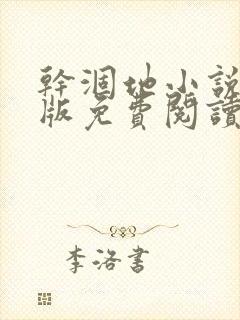 幹涸地小說
版免費閱讀
李洛書